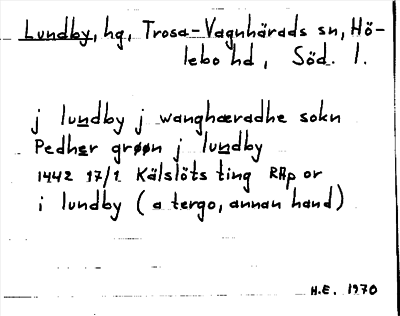 Lundby, hg, Trosa-Vagnhärads sn, Hö-
lebo hd, Söd. l.
j lundby j wanghæradhe sokn
Pedher grøøn j lundby
1442 17/1 Kälslöts ting RAp or
i lundby (a tergo, annan hand)
H.E. 1970